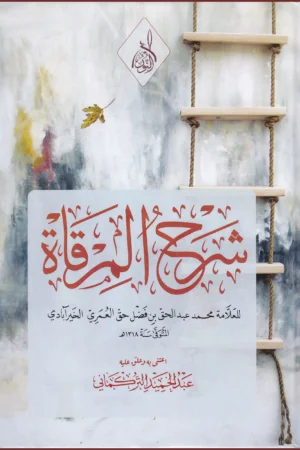 النور
شرح المرقاة
للعلامة محمد عبد الحق بن فضل حق العمري الخيرآبادي
المتوفى سنة ١٣١٨هـ
اعتنى به وعلق عليه
عبد الحميد التركماني